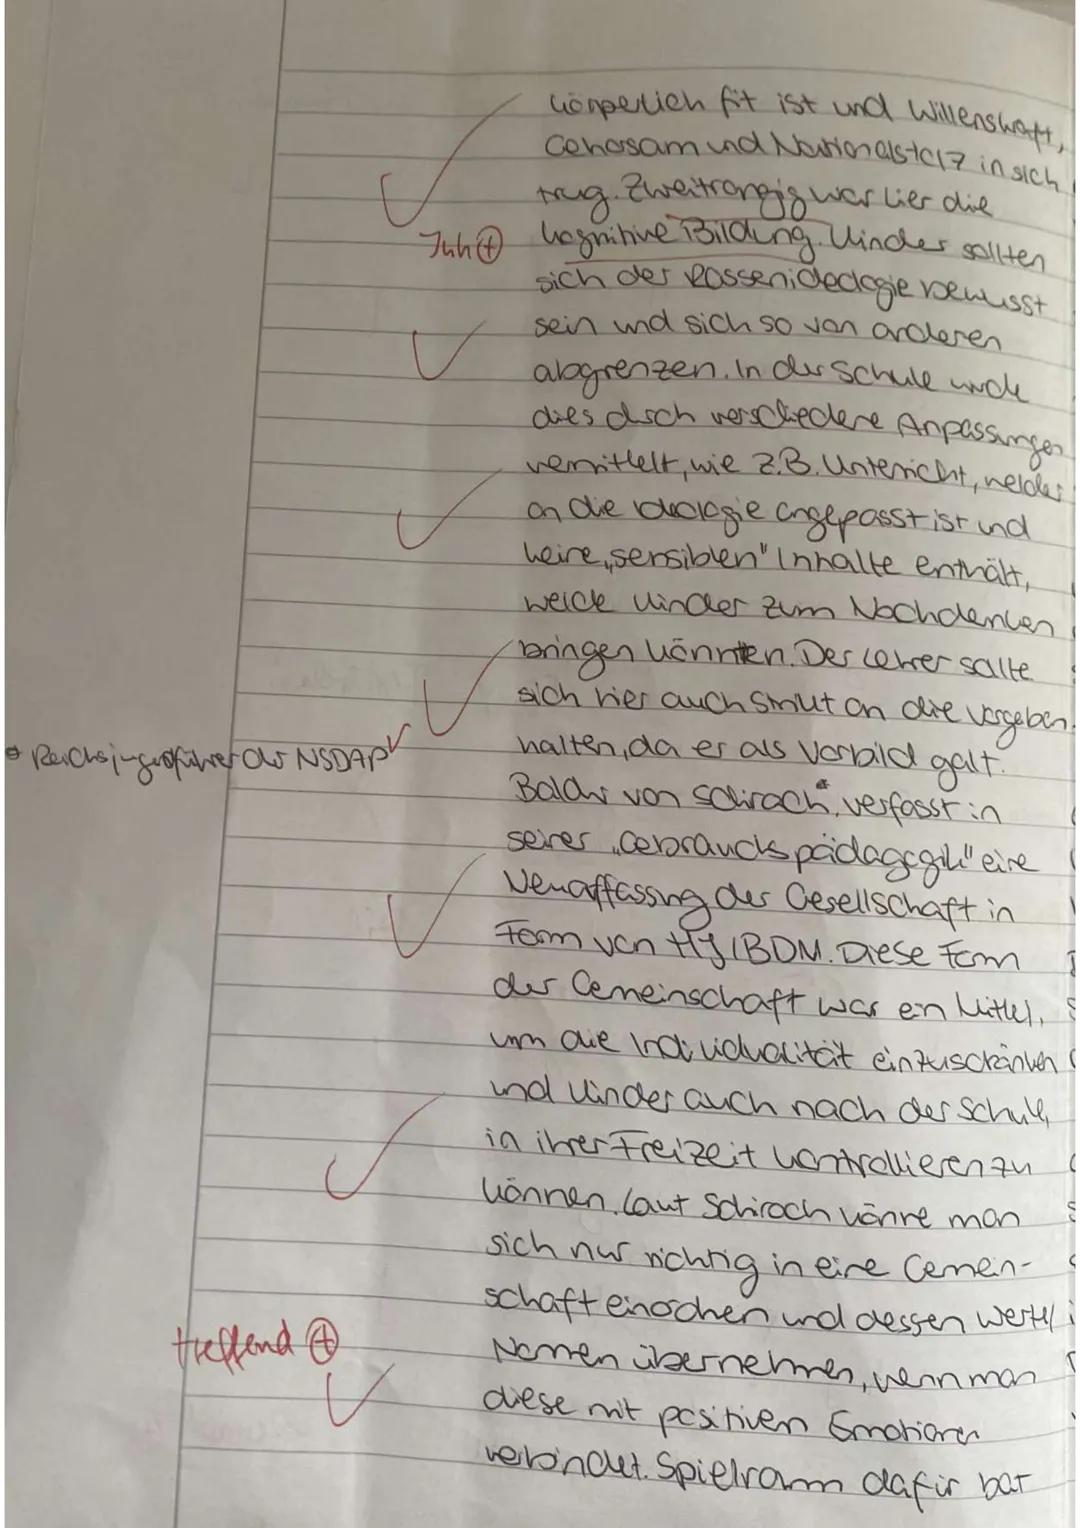 körperlich fit ist und Willenskraft,
Gehosam und Nationalstolz in sich
trug. Zweitrangig war hier die
Inh +
kognitive Bildung. Kinder sollten
sich der Rassenideologie bewusst
sein und sich so von anderen
abgrenzen. In der Schule wurde
dies durch verschiedene Anpassungen
vermittelt, wie z.B. Unterricht, welcher
an die Ideologie angepasst ist und
keine „sensiblen" Inhalte enthält,
welche Kinder zum Nachdenken
bringen könnten. Der Lehrer sollte
sich hier auch strikt an die Vorgaben
halten, da er als Vorbild galt.
* Reichsjugendführer der NSDAP
Baldur von Schirach* verfasst in
seiner „Gebrauchspädagogik" eine
Neuauffassung der Gesellschaft in
Form von HJ/BDM. Diese Form
der Gemeinschaft war ein Mittel,
um die Individualität einzuschränken
und Kinder auch nach der Schule,
in ihrer Freizeit kontrollieren zu
können. Laut Schirach könne man
sich nur richtig in eine Gemein-
schaft einordnen und dessen Werte/
treffend +
Normen übernehmen, wenn man
diese mit positiven Emotionen
verbindet. Spielraum dafür bot